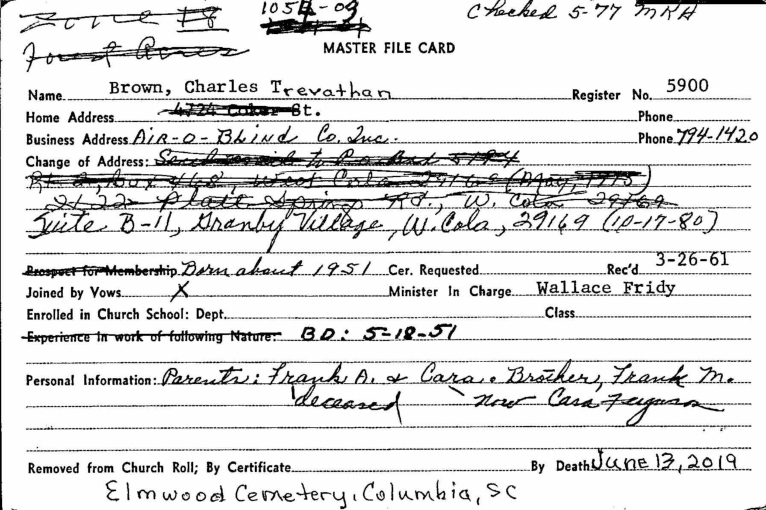 Zone 18 1054-09 Checked 5-77 MKH
Forest Acres
MASTER FILE CARD
Name Brown, Charles Trevathan Register No. 5900
Home Address 4724 Coker St. Phone
Business Address AIR-O-BLIND Co. Inc. Phone 794-1420
Change of Address: Send mail to P.O. Box 5194
Rt 2, Box 468, West Cola 29169 (May, 1975)
2122 Platt Spring Rd., W. Cola 29169
Suite B-11, Granby Village, W. Cola, 29169 (10-17-80)
Prospect for Membership Born about 1951 Cer. Requested Rec'd 3-26-61
Joined by Vows X Minister In Charge Wallace Fridy
Enrolled in Church School: Dept. Class
Experience in work of following Nature: BD: 5-18-51
Personal Information: Parents: Frank A. & Cara. Brother, Frank M.
deceased now Cara Ferguson
Removed from Church Roll; By Certificate By Death June 13, 2019
Elmwood Cemetery, Columbia, SC